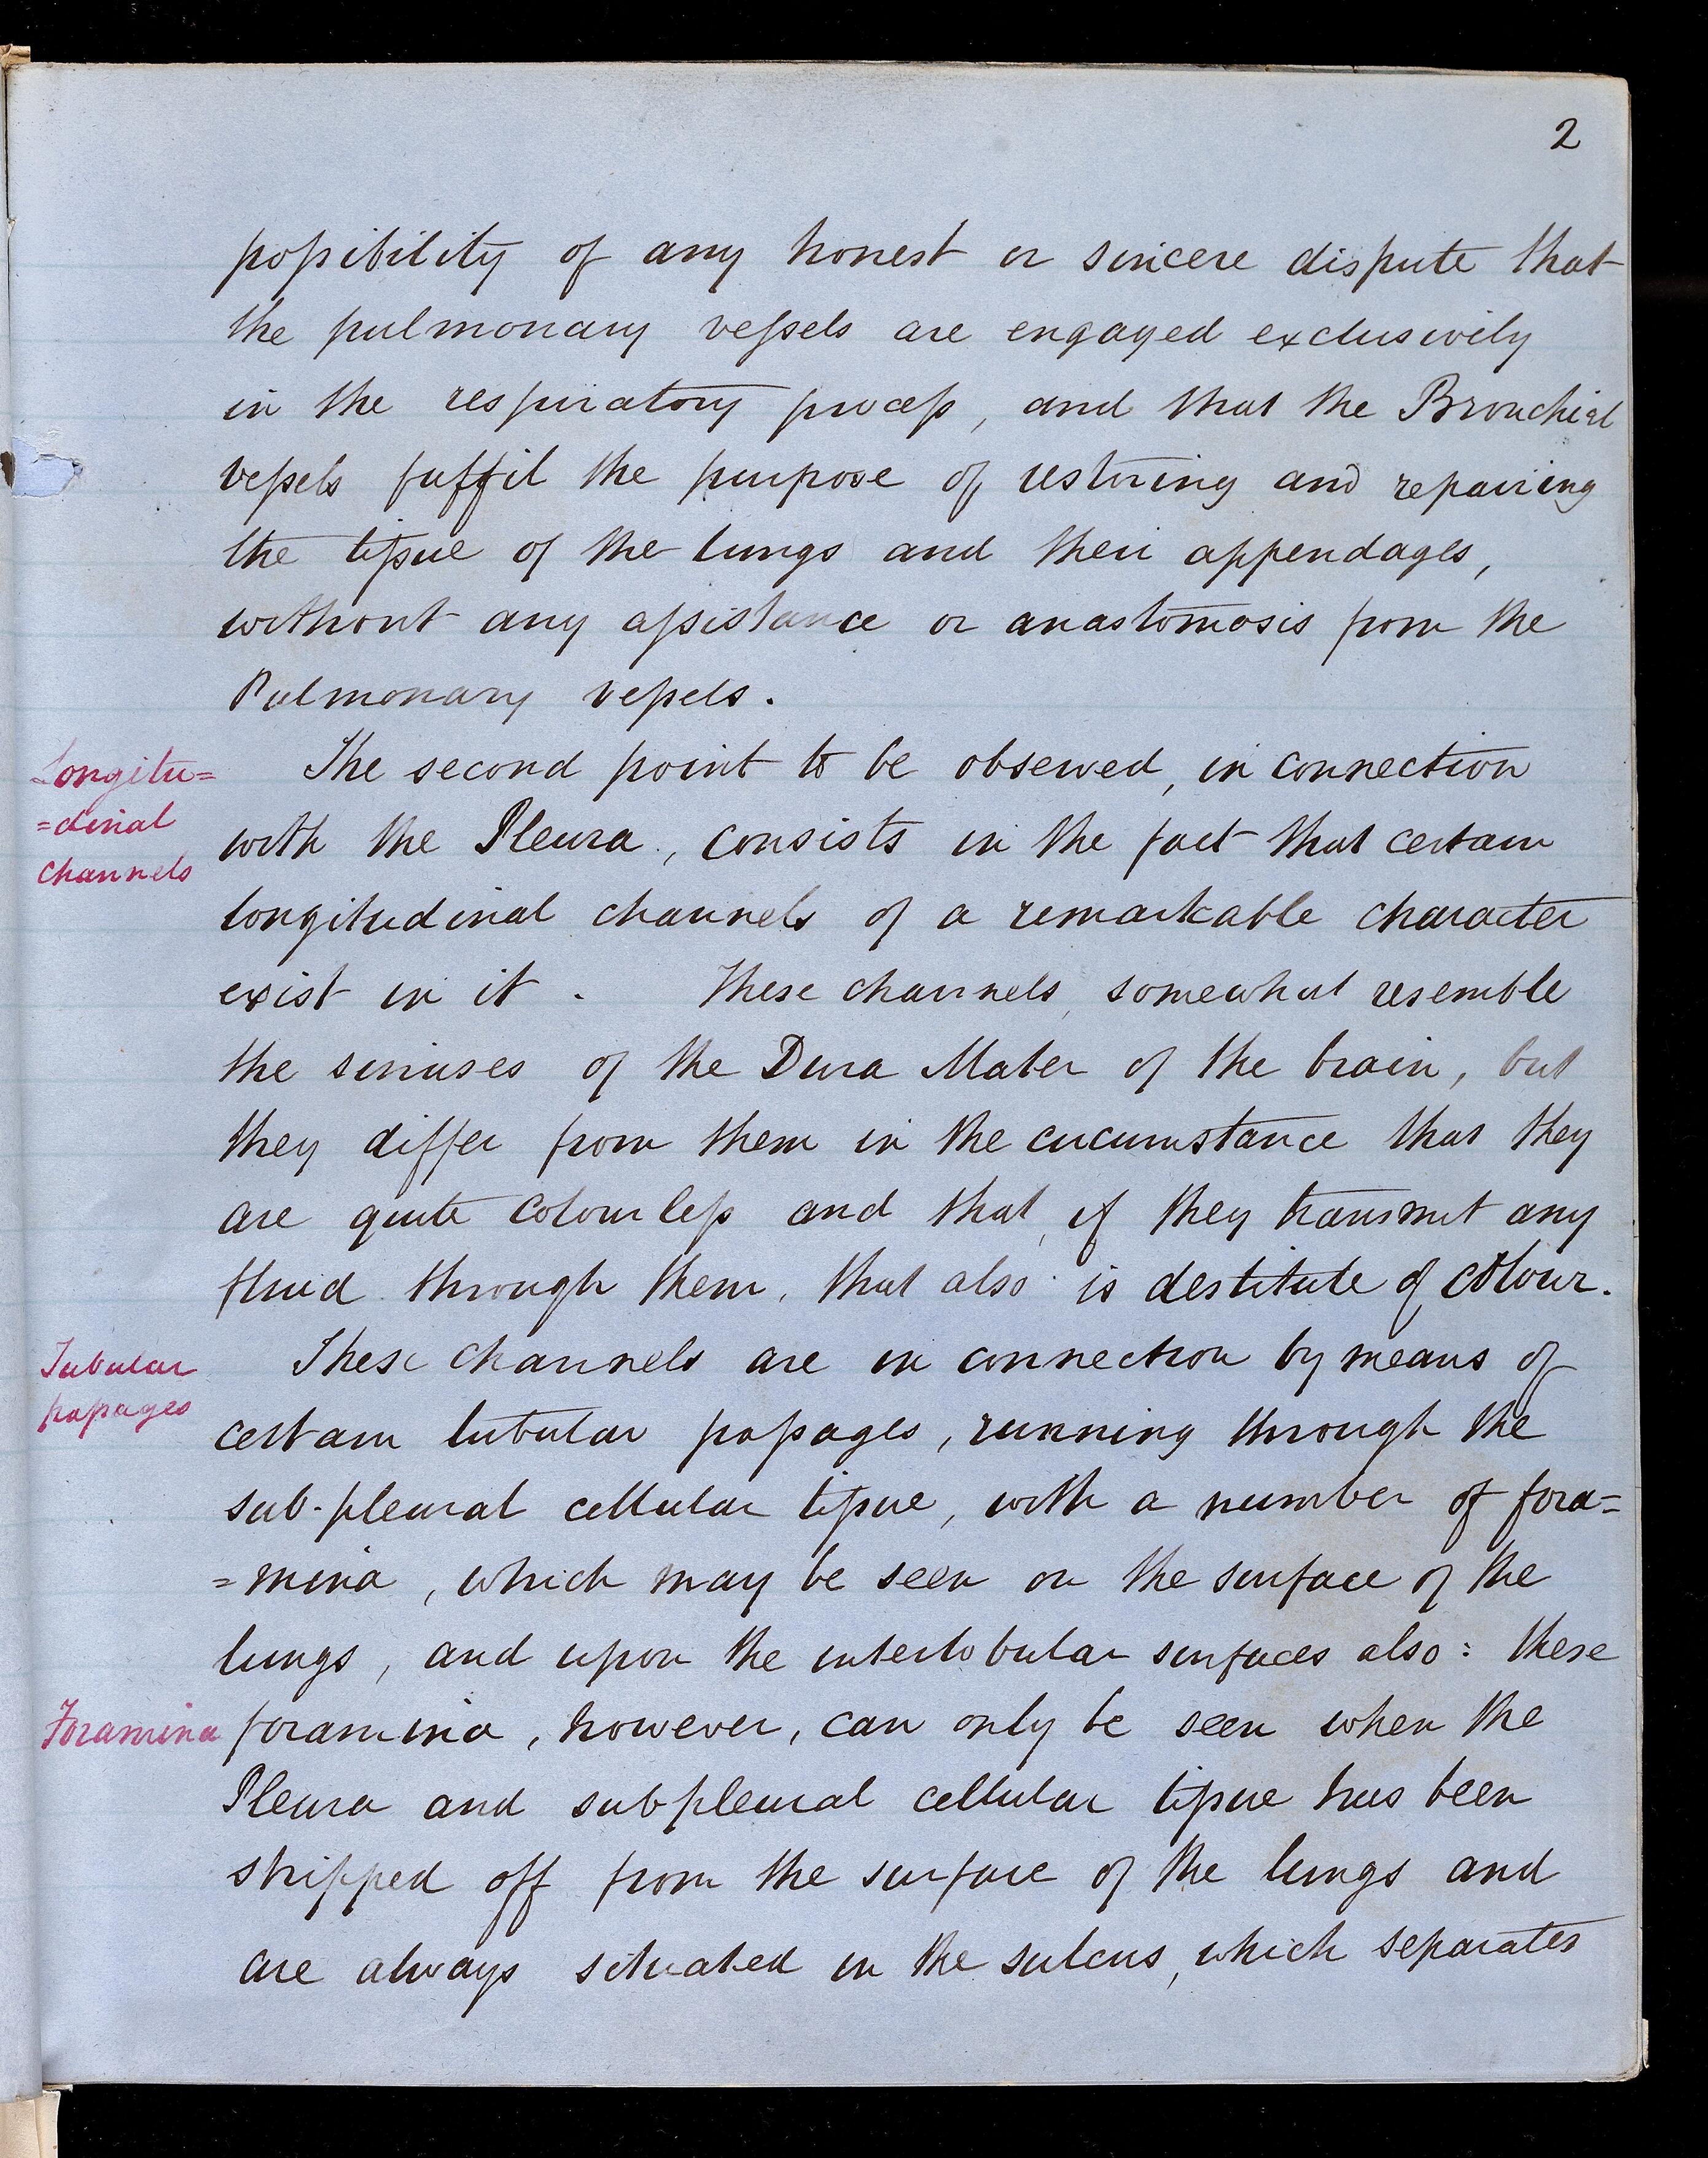 2
possibility of any honest or sincere dispute that
the pulmonary vessels are engaged exclusively
in the respiratory process, and that the Bronchial
vessels fulfil the purpose of restoring and repairing
the tissue of the lungs and their appendages,
without any assistance or anastomosis from the
Pulmonary vessels.
Longitu=
=dinal
channels
The second point to be observed, in connection
with the Pleura, consists in the fact that certain
longitudinal channels of a remarkable character
exist in it. These channels, somewhat resemble
the sinuses of the Dura Mater of the brain, but
they differ from them in the circumstance that they
are quite colourless and that, if they transmit any
fluid through them, that also is destitute of colour.
Tubular
passages
These channels are in connection by means of
certain tubular passages, running through the
sub-pleural cellular tissue, with a number of fora=
=mina, which may be seen on the surface of the
lungs, and upon the interlobular surfaces also: these
Foramina
foramina, however, can only be seen when the
Pleura and subpleural cellular tissue has been
stripped off from the surface of the lungs and
are always situated in the sulcus, which separates